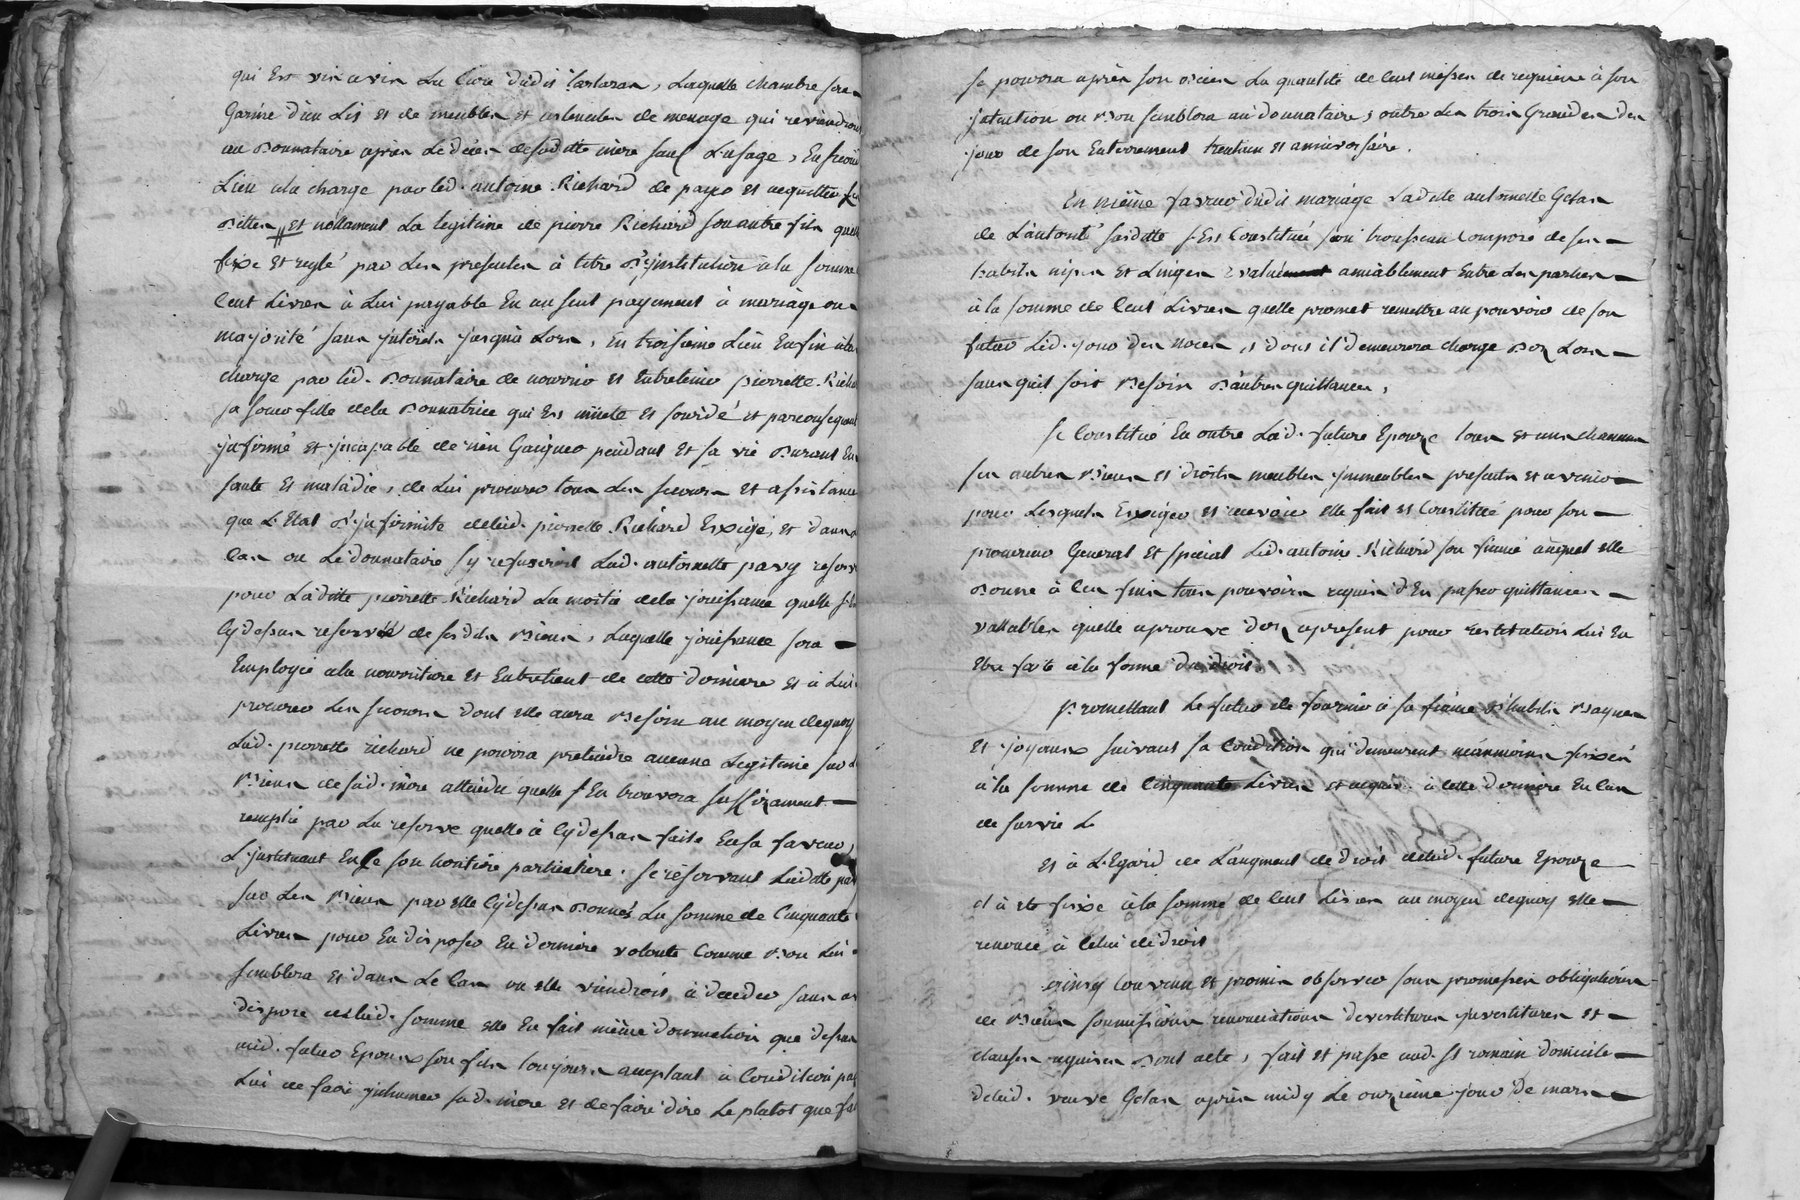 qui Est vis a vis du Curé dudit Tartaras, Laquelle chambre sera
Garnie d'un Lit et de meubles et ustenciles de menage qui reviendront
au Donnataire après Le décès desaditte mère sauf L'usage, En second
Lieu ala charge par led. antoine Richard de payer et acquitter ses
Dettes et nottament La legitime de pierre Richard son autre fils quelle
fixe et reglé par Les presentes à titre D'jnstitution à la somme
Cent Livres à Lui payable En un seul payement à mariage ou
majorité sans jnterets jusqu'à Lors, En troisieme Lieu Enfin à la
charge par led. Donnataire de nourrir et Entretenir pierrette Richard
sa soeur fille dela Donnatrice qui Est müete et sourde et par consequent
jnfirme et jncapable de rien Gaigner pendant et sa vie Durant En
santé et maladie, de Lui procurer tous Les secours et assistance
que L'Etat D'jnfirmité delad. pierrette Richard Exige, et dans
Cas ou Le donnataire s'y refuseroit Lad. antoinette pavy reserve
pour Laditte pierrette Richard La moitié dela jouissance quelle s'Est
Cy dessus reservée de sesdits Biens, Laquelle jouissance sera
Employée ala nourriture et Entretient de cette derniere et à Lui
procurer Les secours dont elle aura Besoin au moyen dequoy
Lad. pierrette richard ne pourra pretendre aucune Legitime sur les
Biens de sad. mère attendu quelle s'En trouvera suffizament
remplie par La reserve quelle à Cy dessus faite En sa faveur,
L'jnstituant En Ce son heritière particulière. Se réservant Laditte pavy
sur Les Biens par elle Cy dessus Donnés La somme de Cinquante
Livres pour En disposer En derniere volonté Comme Bon Lui
semblera et dans Le Cas ou elle viendroit à deceder sans en
dispose deslad. somme elle En fait même donnation que dessus
aud. futur Epoux son fils toujours acceptant à Condition par
Lui de faire jnhumer sad. mère et de faire dire Le plutot que faire
se pourra après son décès La quantité de Cent messes de requiem à son
jntention ou Bon semblera au donnataire, outre Les trois Grandes des
jour de son Enterrement trentain et anniversaire.
En même faveur dudit mariage Laditte antoinette Getas
de L'autorité susditte s'Est Constitué son trousseau Composé de ses
habits nipes et Linges évalué amiablement Entre Les parties
à la somme de Cent Livres quelle promet remettre au pouvoir de son
futur Led. jour des noces, et dont il demeurera charge Dez Lors
sans quil soit Besoin D'autres quittances,
Se Constitué En outre Lad. future Epouze tous et uns chacuns
ses autres Biens et droits meubles jmmeubles presents et avenir
pour Lesquels Exiger et recevoir elle fait et Constitué pour son
procureur General et special Led. antoine Richard son fiancé auquel elle
Donne à Ces fins tous pouvoirs requis d'En passer quittances
vallables quelle aprouve dez apresent pour restitution Lui En
Etre faite à la forme du droit
Promettant Le futur de fournir à sa fiancé D'habits Bagues
et joyaux suivant sa Condition qui demeurent néanmoins fixés
à la somme de Cinquante Livres et acquis à cette derniere En Cas
de survie L.
et à L'Egard de L'augment de droit delad. future Epouze
il à eté fixe à la somme de Cent Livres au moyen dequoy elle
renonce à Celui de droit
ainsy Convenu et promis observer sous promesses obligations
de Biens soumissions renonciations devestitures jnvestitures et
clauses requises Dont acte, fait et passé aud. St romain domicile
delad. veuve Getas après midy Le onzième jour de mars